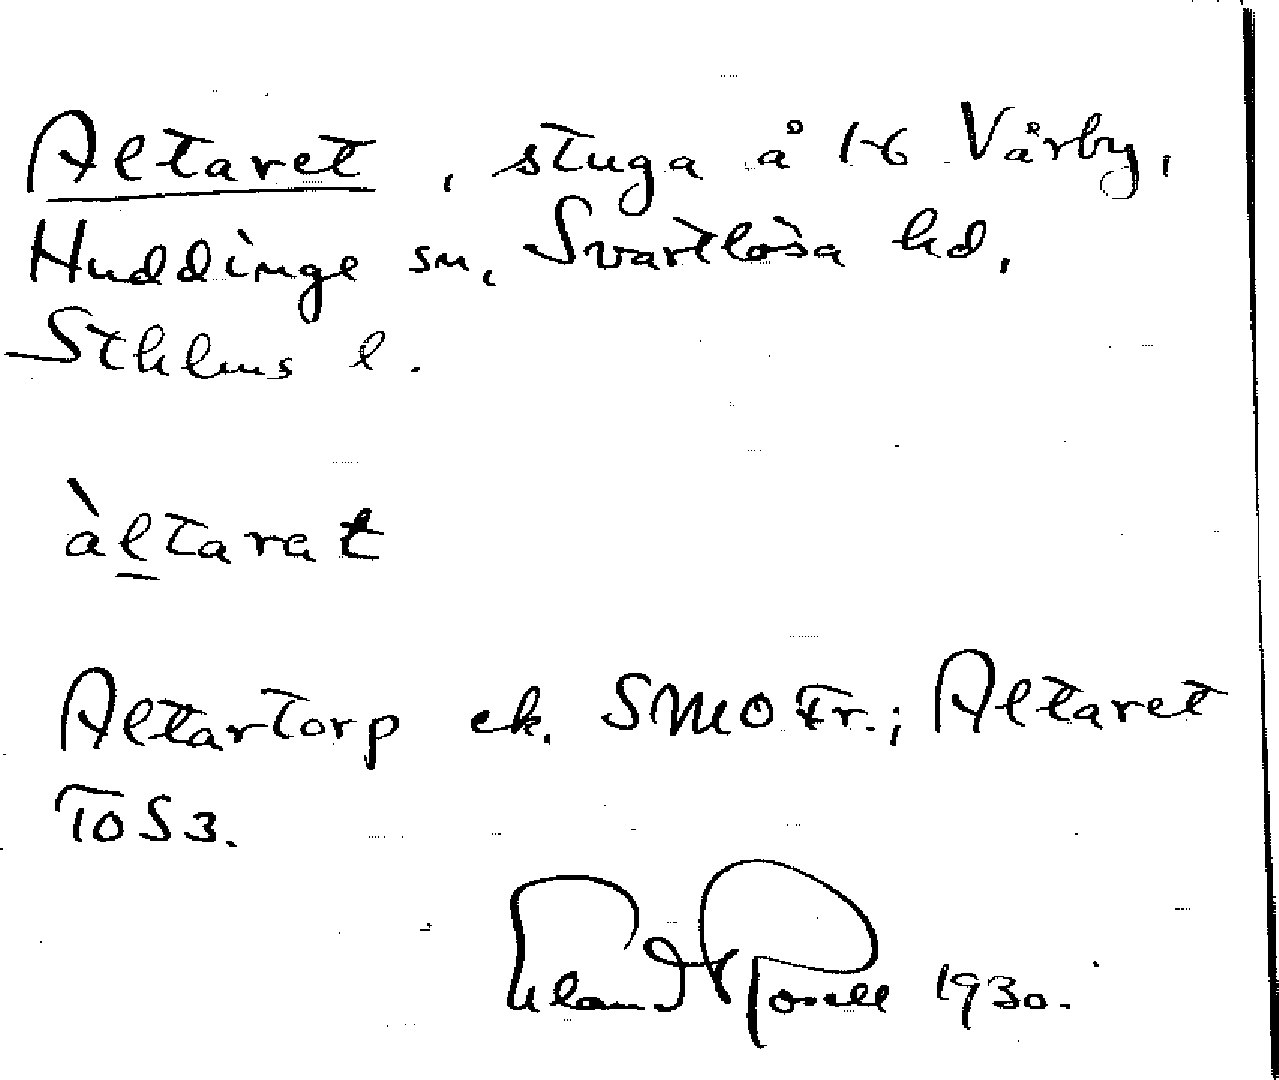 Altaret, stuga å 1-6 Vårby,
Huddinge sn, Svartlösa hd,
Sthlms l.
àltarat
Altartorp ek. SMO Fr.; Altaret
TOS3.
1930.